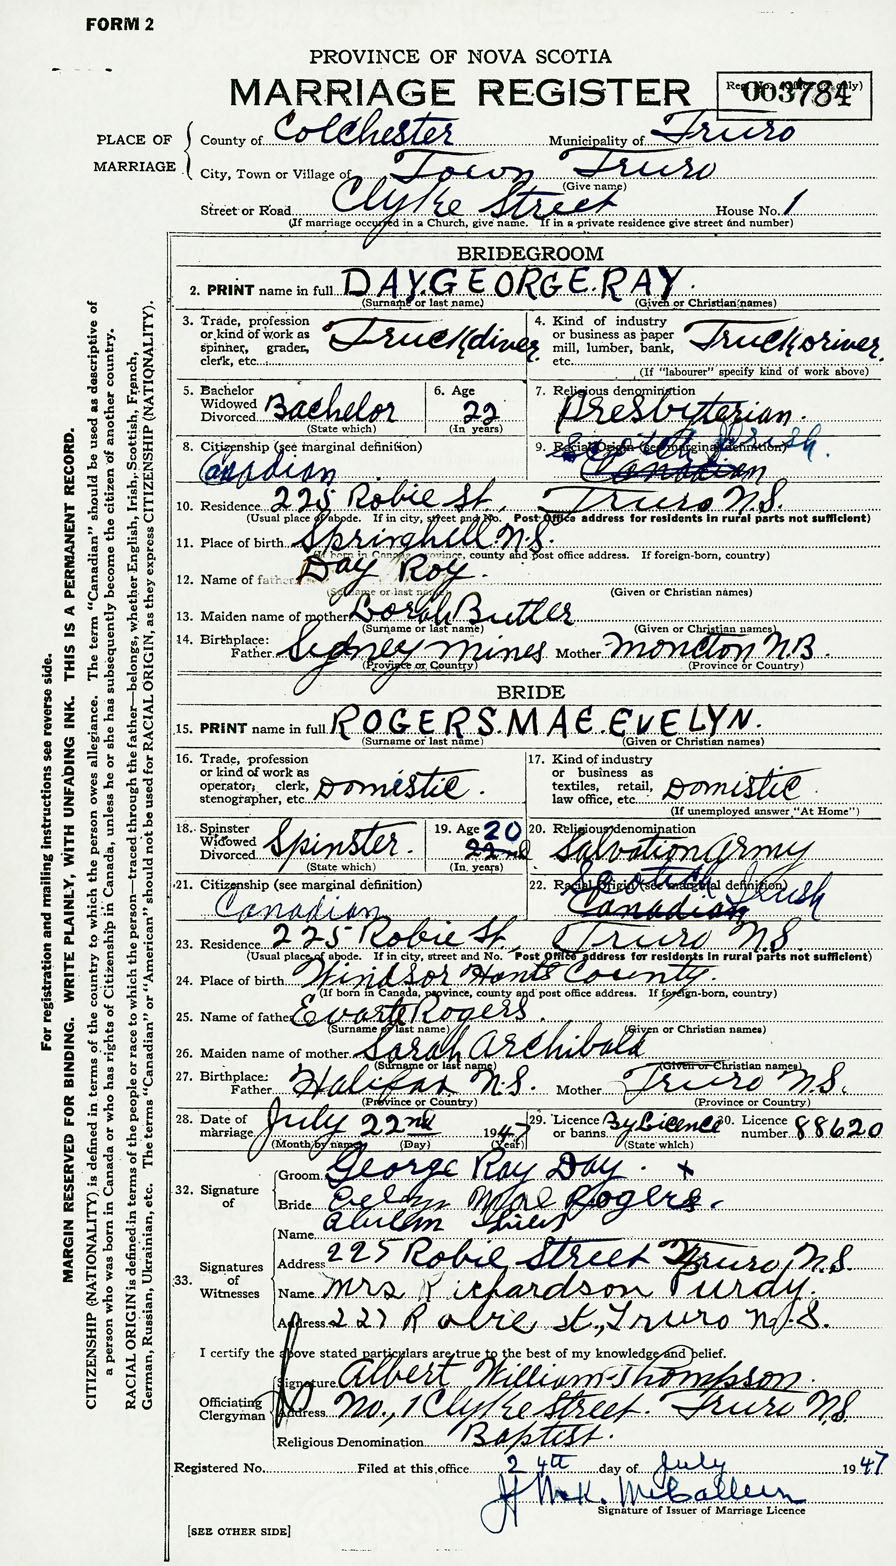 FORM 2
PROVINCE OF NOVA SCOTIA
MARRIAGE REGISTER
003784
PLACE OF MARRIAGE
County of Colchester Municipality of Truro
City, Town or Village of Town Truro
(Give name)
Street or Road Clyke Street House No. 1
(If marriage occurred in a Church, give name. If in a private residence give street and number)
BRIDEGROOM
2. PRINT name in full DAY. GEORGE. RAY.
(Surname or last name) (Given or Christian names)
3. Trade, profession or kind of work as spinner, grader, clerk, etc. Truckdiver
4. Kind of industry or business as paper mill, lumber, bank, etc. Truckdriver.
(If "labourer" specify kind of work above)
5. Bachelor Widowed Divorced Bachelor
(State which)
6. Age 22
(In years)
7. Religious denomination Presbyterian.
8. Citizenship (see marginal definition) Canadian
9. Racial Origin (see marginal definition) Scotch Irish. Canadian
10. Residence 225 Robie St., Truro N.S.
(Usual place of abode. If in city, street and No. Post Office address for residents in rural parts not sufficient)
11. Place of birth Springhill N.S.
(If born in Canada, province, county and post office address. If foreign-born, country)
12. Name of father Day Roy.
(Surname or last name) (Given or Christian names)
13. Maiden name of mother Butler
(Surname or last name) (Given or Christian names)
14. Birthplace: Father Sydney mines Mother Moncton N.B.
(Province or Country) (Province or Country)
BRIDE
15. PRINT name in full ROGERS. MAE. EVELYN.
(Surname or last name) (Given or Christian names)
16. Trade, profession or kind of work as operator, clerk, stenographer, etc. Domistic.
17. Kind of industry or business as textiles, retail, law office, etc. Domistic
(If unemployed answer "At Home")
18. Spinster Widowed Divorced Spinster.
(State which)
19. Age 20 22nd
(In years)
20. Religious denomination Salvation Army
21. Citizenship (see marginal definition) Canadian
22. Racial Origin (see marginal definition) Scotch Irish Canadian
23. Residence 225 Robie St, Truro N.S.
(Usual place of abode. If in city, street and No. Post Office address for residents in rural parts not sufficient)
24. Place of birth Windsor Hants County.
(If born in Canada, province, county and post office address. If foreign-born, country)
25. Name of father Rogers.
(Surname or last name) (Given or Christian names)
26. Maiden name of mother Sarah Archibald
(Surname or last name) (Given or Christian names)
27. Birthplace: Father Halifax N.S. Mother Truro N.S.
(Province or Country) (Province or Country)
28. Date of marriage July 22nd 1947
(Month by name) (Day) (Year)
29. Licence or banns By Licence
(State which)
30. Licence number 88620
32. Signature of
Groom George Ray Day. x
Bride Mae Rogers.
33. Signatures of Witnesses
Name
Address 225 Robie Street Truro, N.S.
Name Mrs Richardson Purdy.
Address 227 Robie st., Truro N.S.
I certify the above stated particulars are true to the best of my knowledge and belief.
Officiating Clergyman
Signature Albert William Thompson.
Address No., 1 Clyke Street. Truro N.S.
Religious Denomination Baptist.
Registered No. Filed at this office 24th day of July 1947
Signature of Issuer of Marriage Licence
[SEE OTHER SIDE]
For registration and mailing instructions see reverse side.
MARGIN RESERVED FOR BINDING. WRITE PLAINLY, WITH UNFADING INK. THIS IS A PERMANENT RECORD.
CITIZENSHIP (NATIONALITY) is defined in terms of the country to which the person owes allegiance. The term "Canadian" should be used as descriptive of
a person who was born in Canada or who has rights of Citizenship in Canada, unless he or she has subsequently become the citizen of another country.
RACIAL ORIGIN is defined in terms of the people or race to which the person—traced through the father—belongs, whether English, Irish, Scottish, French,
German, Russian, Ukrainian, etc. The terms "Canadian" or "American" should not be used for RACIAL ORIGIN, as they express CITIZENSHIP (NATIONALITY).